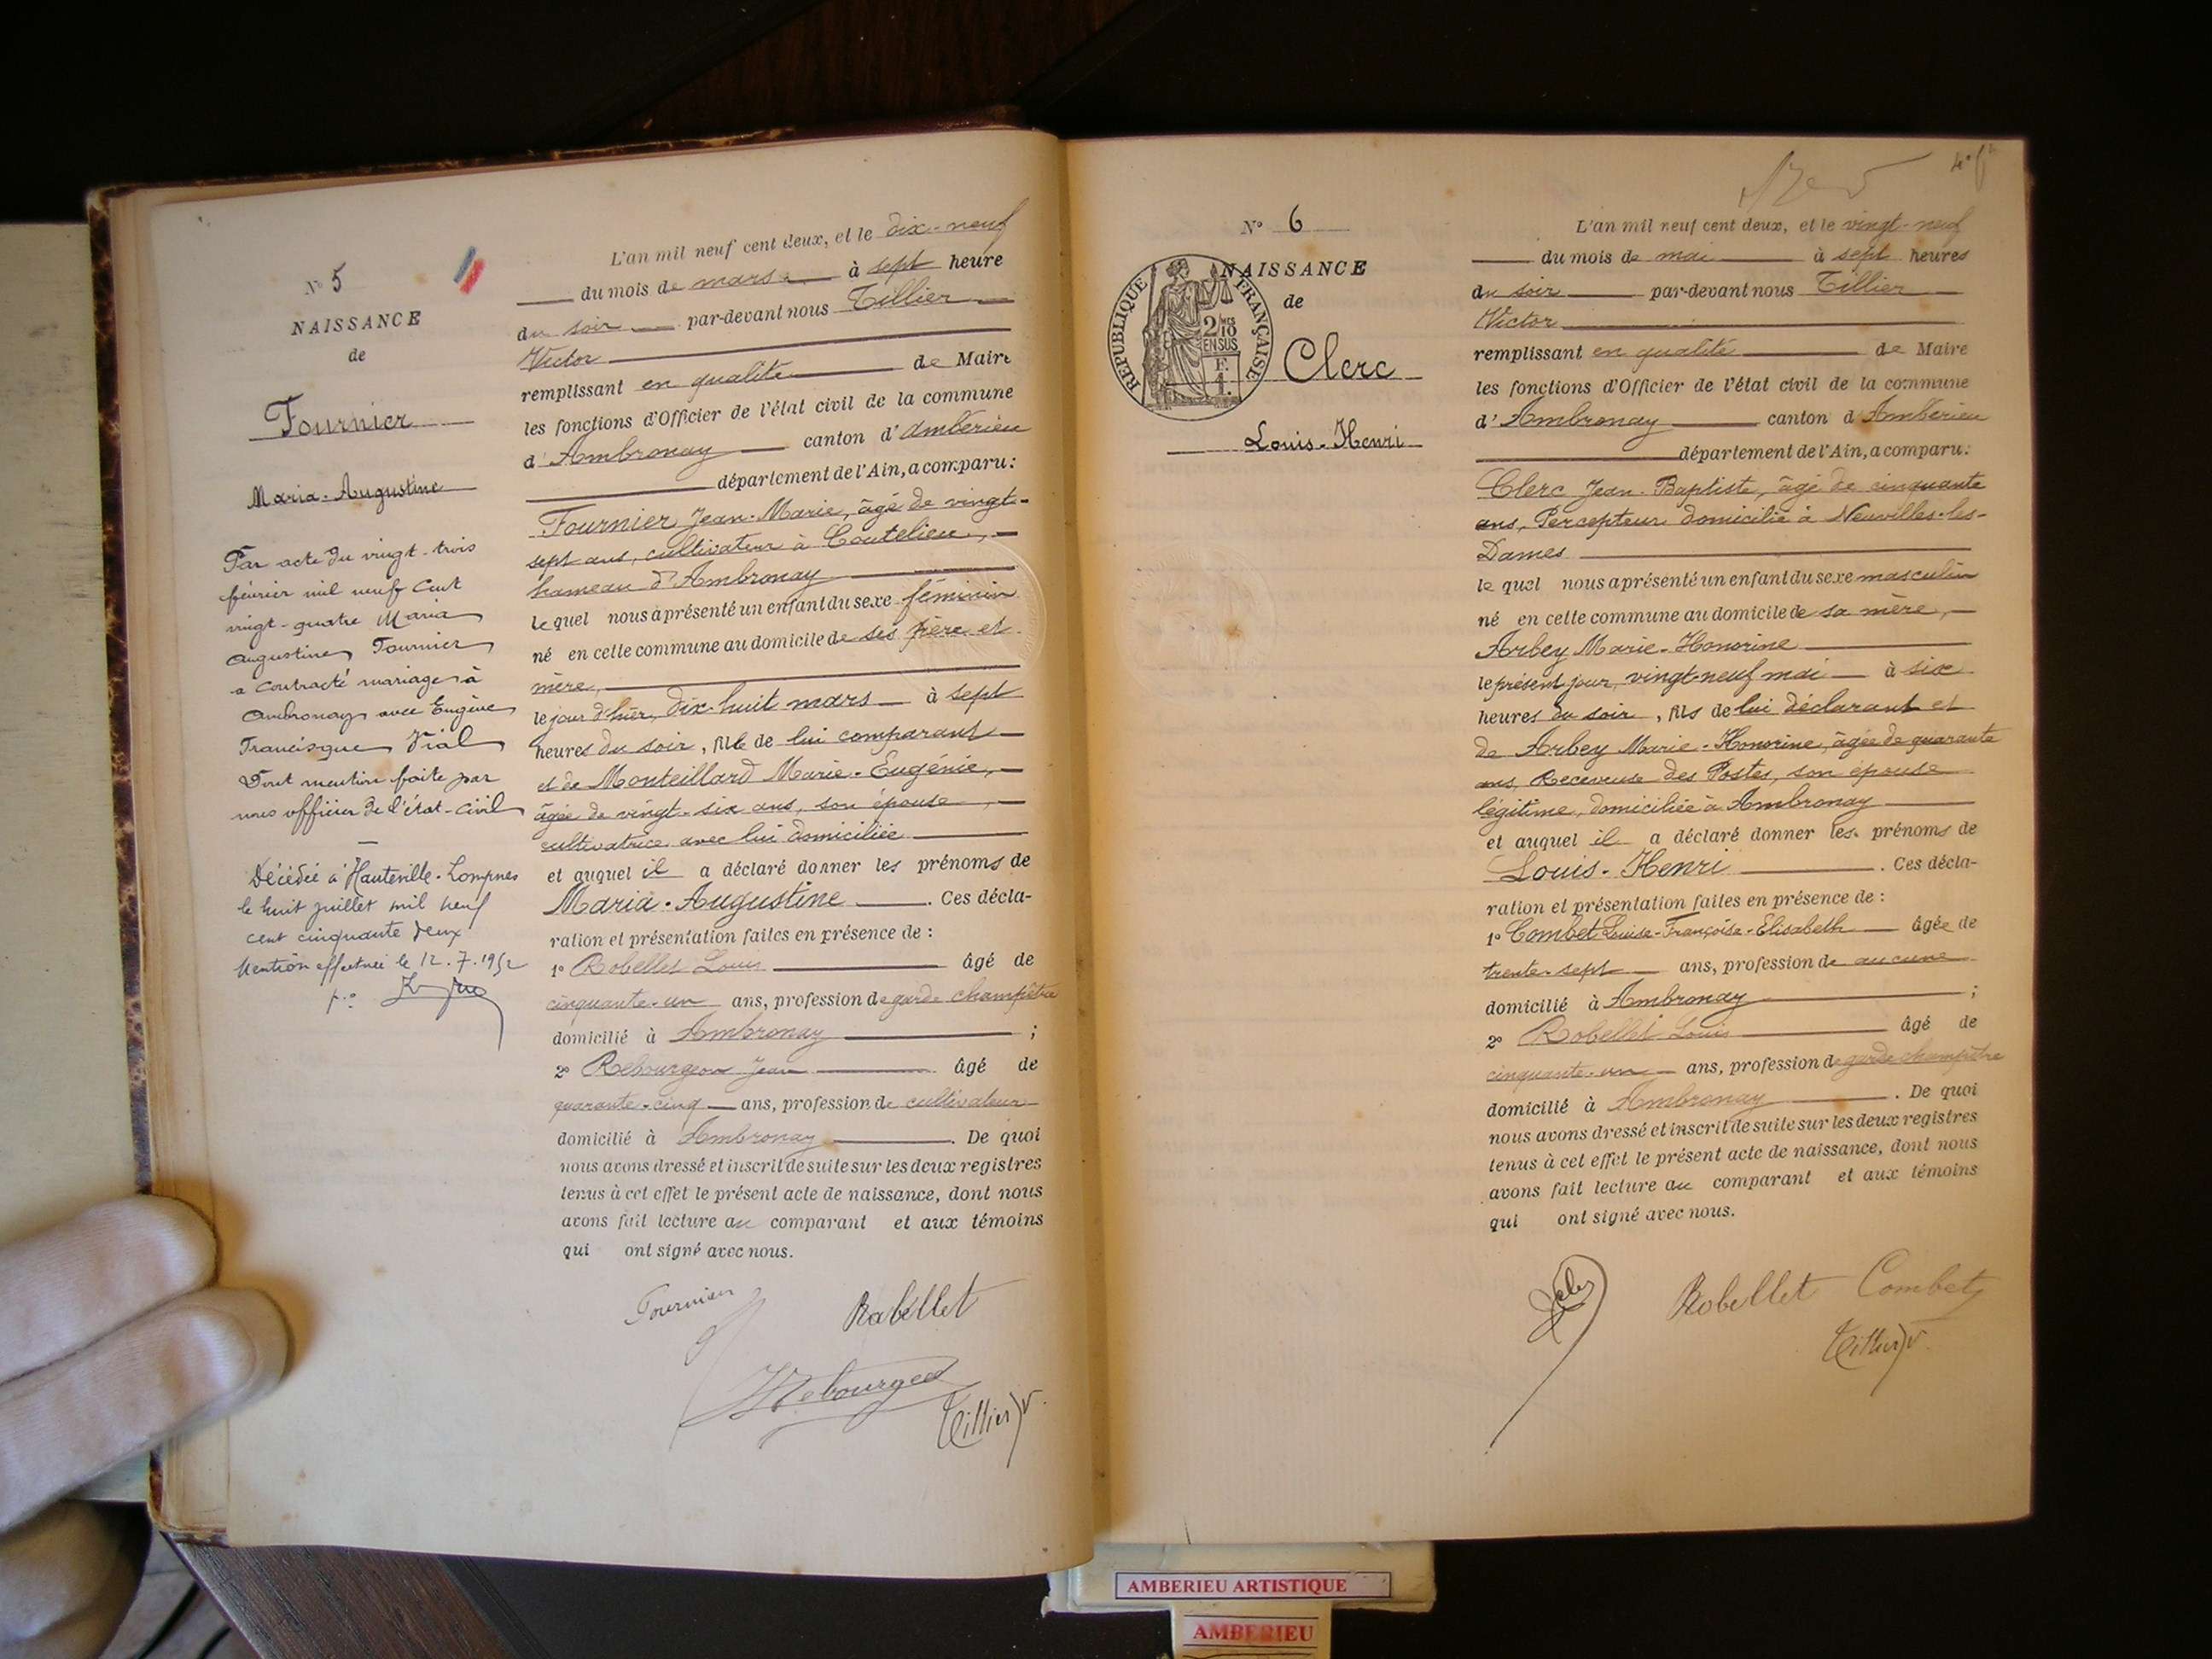 N° 5
NAISSANCE
de
Fournier
Maria-Augustine
Par acte du vingt-trois
février mil neuf cent
vingt-quatre Maria
Augustine Fournier
a contracté mariage à
Ambronay avec Eugène
Francisque Vial
Dont mention faite par
nous officier de l'état-civil
Décédée à Hauteville-Lompnes
le huit juillet mil neuf
cent cinquante deux
Mention effectuée le 12.7.1952
L'an mil neuf cent deux, et le dix-neuf
du mois de mars à sept heure
du soir par-devant nous Tillier
Victor
remplissant en qualité de Maire
les fonctions d'Officier de l'état civil de la commune
d'Ambronay canton d'Ambérieu
département de l'Ain, a comparu:
Fournier Jean-Marie, âgé de vingt-
sept ans, cultivateur à Coutelieu,
hameau d'Ambronay
lequel nous a présenté un enfant du sexe féminin
né en cette commune au domicile de ses père et
mère,
le jour d'hier, dix-huit mars à sept
heures du soir, fille de lui comparant
et de Monteillard Marie-Eugénie,
âgée de vingt-six ans, son épouse,
cultivatrice avec lui domiciliée
et auquel il a déclaré donner les prénoms de
Maria-Augustine. Ces décla-
ration et présentation faites en présence de :
1° Robellet Louis âgé de
cinquante-un ans, profession de garde champêtre
domicilié à Ambronay ;
2° Rebourgeon Jean âgé de
quarante-cinq ans, profession de cultivateur
domicilié à Ambronay. De quoi
nous avons dressé et inscrit de suite sur les deux registres
tenus à cet effet le présent acte de naissance, dont nous
avons fait lecture au comparant et aux témoins
qui ont signé avec nous.
Fournier
Robellet
Tillier V.
N° 6
NAISSANCE
de
REPUBLIQUE FRANÇAISE
2/10
EN SUS
F.
1.
Clerc
Louis-Henri
L'an mil neuf cent deux, et le vingt-neuf
du mois de mai à sept heures
du soir par-devant nous Tillier
Victor
remplissant en qualité de Maire
les fonctions d'Officier de l'état civil de la commune
d'Ambronay canton d'Ambérieu
département de l'Ain, a comparu:
Clerc Jean-Baptiste, âgé de cinquante
ans, Percepteur domicilié à Neuvilles-les-
Dames
lequel nous a présenté un enfant du sexe masculin
né en cette commune au domicile de sa mère,
Arbey Marie-Honorine
le présent jour, vingt-neuf mai à six
heures du soir, fils de lui déclarant et
de Arbey Marie-Honorine, âgée de quarante
ans, Receveuse des Postes, son épouse
légitime, domiciliée à Ambronay
et auquel il a déclaré donner les prénoms de
Louis-Henri. Ces décla-
ration et présentation faites en présence de :
1° Combet Louise-Françoise-Elisabeth âgée de
trente-sept ans, profession de aucune
domicilié à Ambronay ;
2° Robellet Louis âgé de
cinquante-un ans, profession de garde champêtre
domicilié à Ambronay. De quoi
nous avons dressé et inscrit de suite sur les deux registres
tenus à cet effet le présent acte de naissance, dont nous
avons fait lecture au comparant et aux témoins
qui ont signé avec nous.
Robellet Combet
Tillier V.
AMBERIEU ARTISTIQUE
AMBERIEU